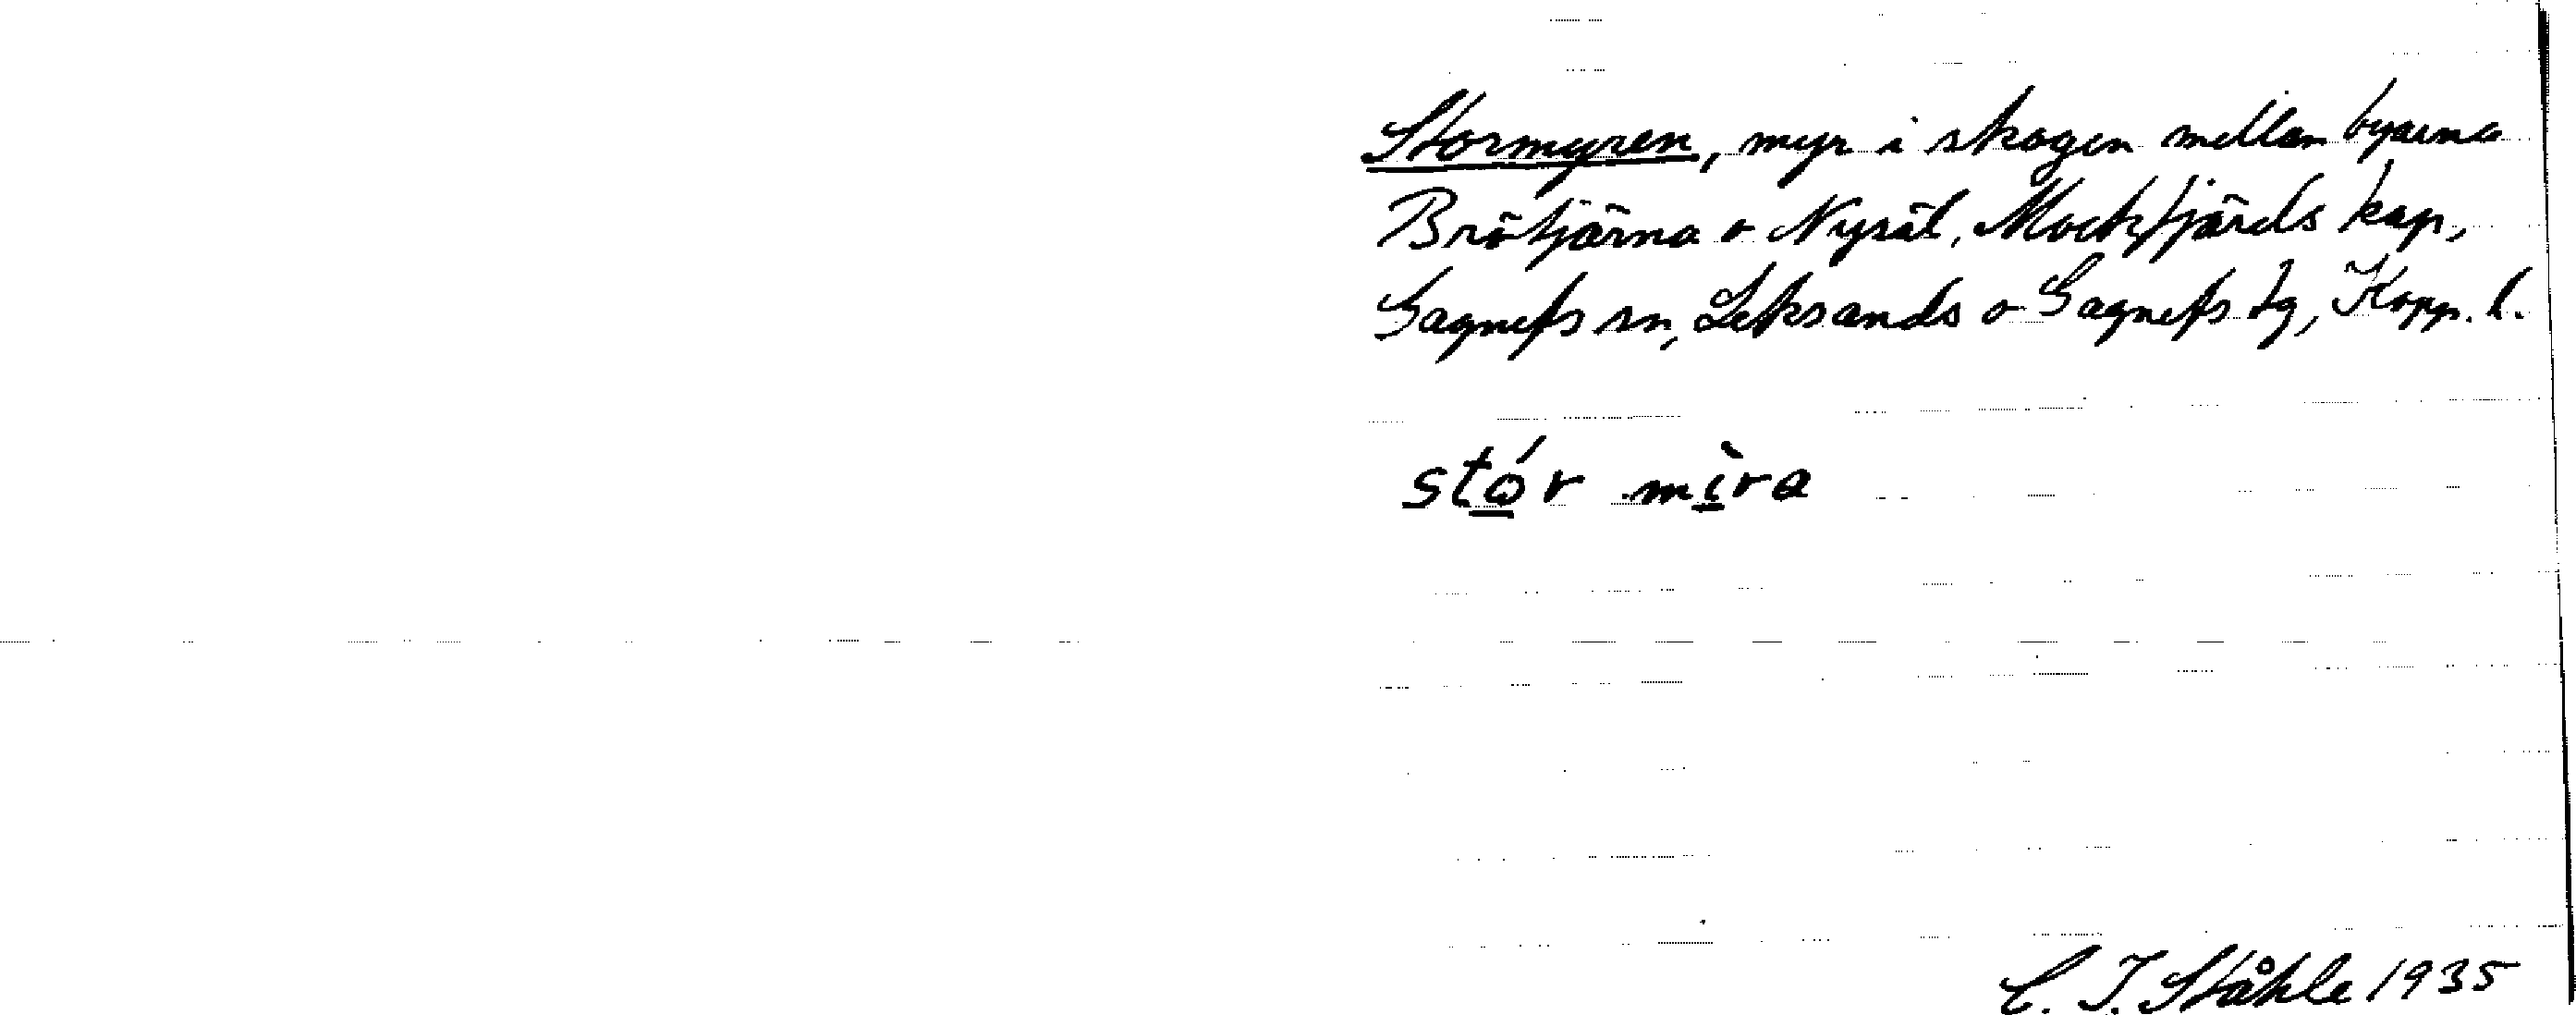 Stormyren, myr i skogen mellan byarna
Brötjärna o Nysäl, Mockfjärds kap.,
Gagnefs sn, Leksands o Gagnefs tg, Kopp. l.
stór mìra
C. I. Ståhle 1935